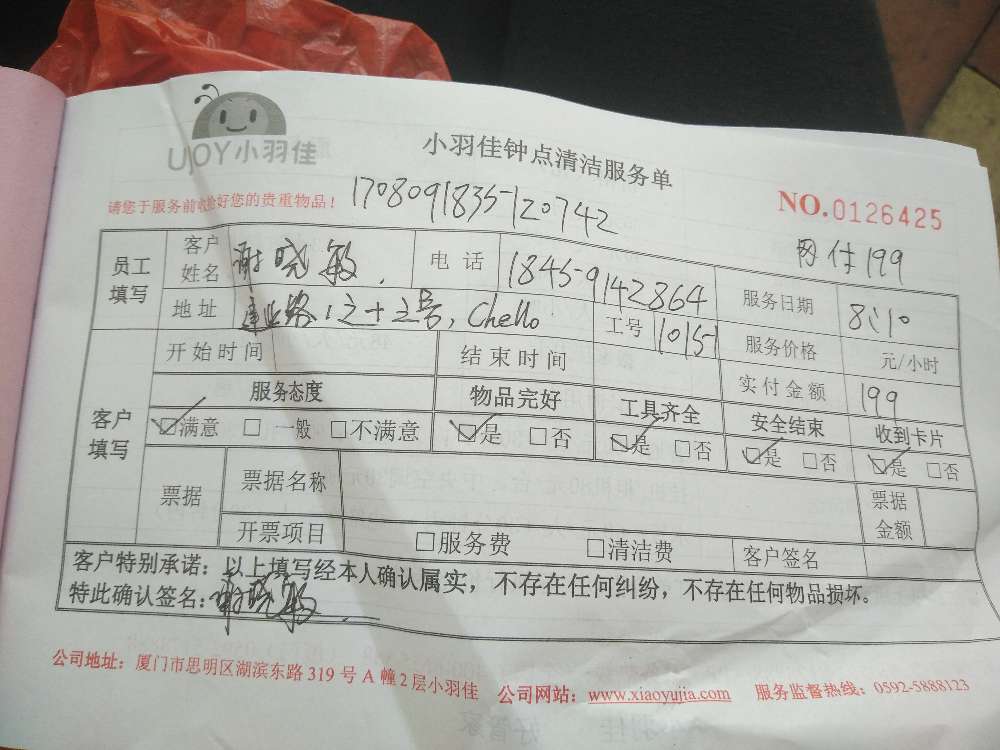 UJOY小羽佳
小羽佳钟点清洁服务单
请您于服务前收好您的贵重物品！ 1708091835-120742 NO.0126425
网付199
员工填写 客户姓名 谢晓敏 电话 18459142864 服务日期 8:10
地址 建业路1之十之号, Chello 工号 11015 服务价格 元/小时
客户填写 开始时间 结束时间 实付金额 199
服务态度 物品完好 工具齐全 安全结束 收到卡片
☑满意 □一般 □不满意 ☑是 □否 ☑是 □否 ☑是 □否 ☑是 □否
票据 票据名称 票据金额
开票项目 □服务费 □清洁费 客户签名
客户特别承诺：以上填写经本人确认属实，不存在任何纠纷，不存在任何物品损坏。
特此确认签名：谢晓敏
公司地址：厦门市思明区湖滨东路 319 号 A 幢 2 层小羽佳 公司网站：www.xiaoyujia.com 服务监督热线：0592-5888123